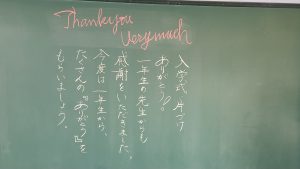 Thank you
Very much
入学式 片づけ
ありがとう!!
一年生の先生からも
感謝をいただきました。
今度は一年生から、
たくさんの"ありがとう"を
もらいましょう。